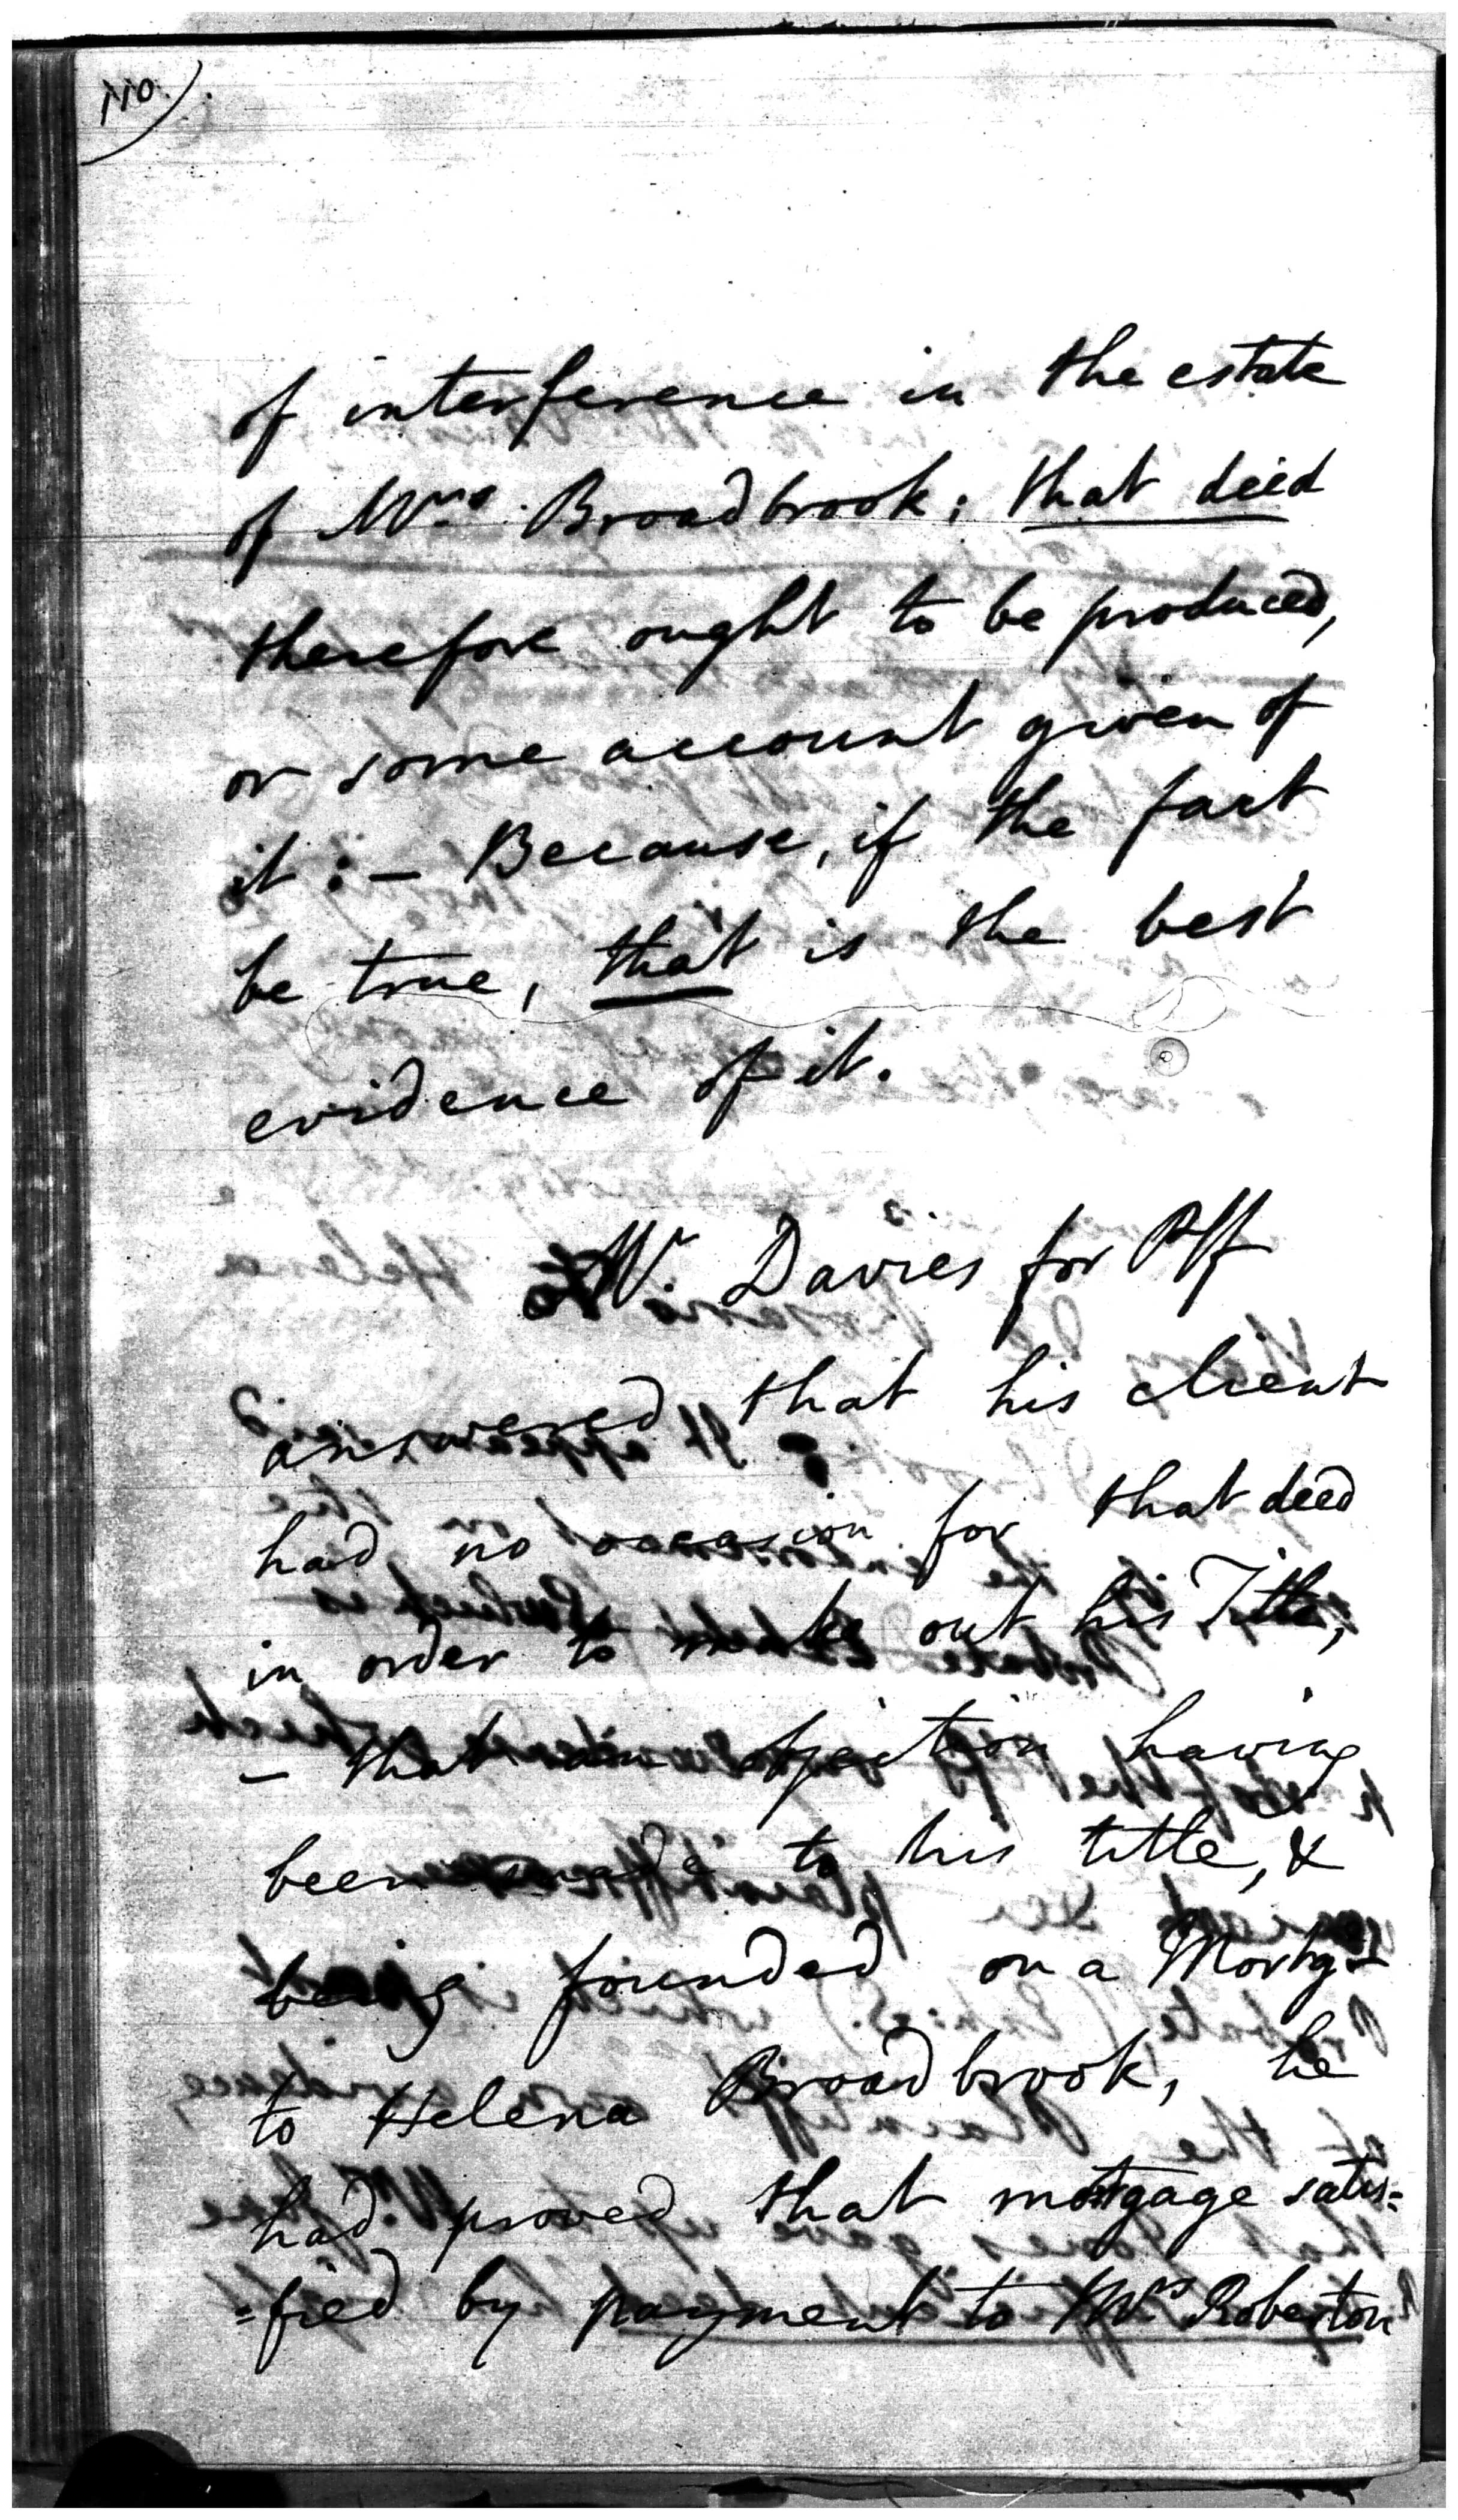 110.
of interference in the estate
of Mrs. Broadbrook; that deed
therefore ought to be produced,
or some account given of
it:— Because, if the fact
be true, that is the best
evidence of it.
Mr. Davies for Plff
answered that his client
had no occasion for that deed
in order to make out his Title,
— that objection having
been made to his title, &
being founded on a Mortg
to Helena Broadbrook, he
had proved that mortgage satis=
=fied by payment to Mrs Roberton